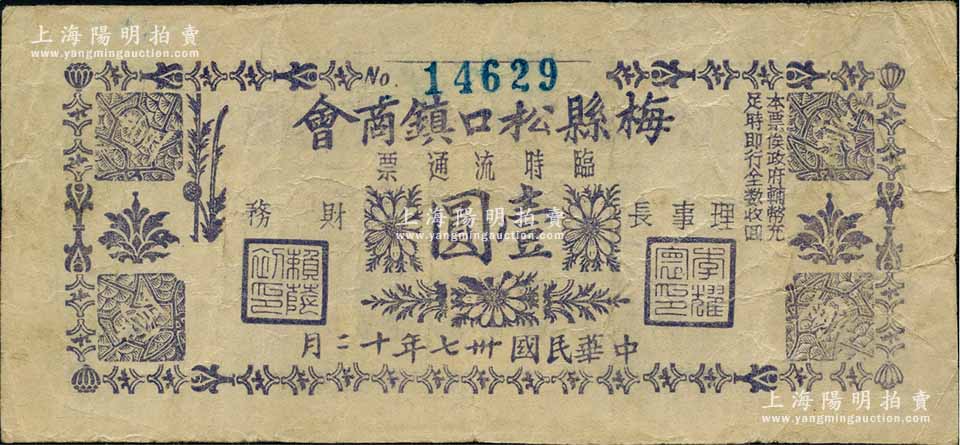 上海陽明拍賣
www.yangmingauction.com
No 14629
梅縣松口鎮商會
臨時流通票
壹圓
本票俟政府輔幣充
足時即行全數收回
理事長
李耀寰印
財務
賴蔭
中華民國卅七年十二月
上海陽明拍賣
www.yangmingauction.com
上海陽明拍賣
www.yangmingauction.com